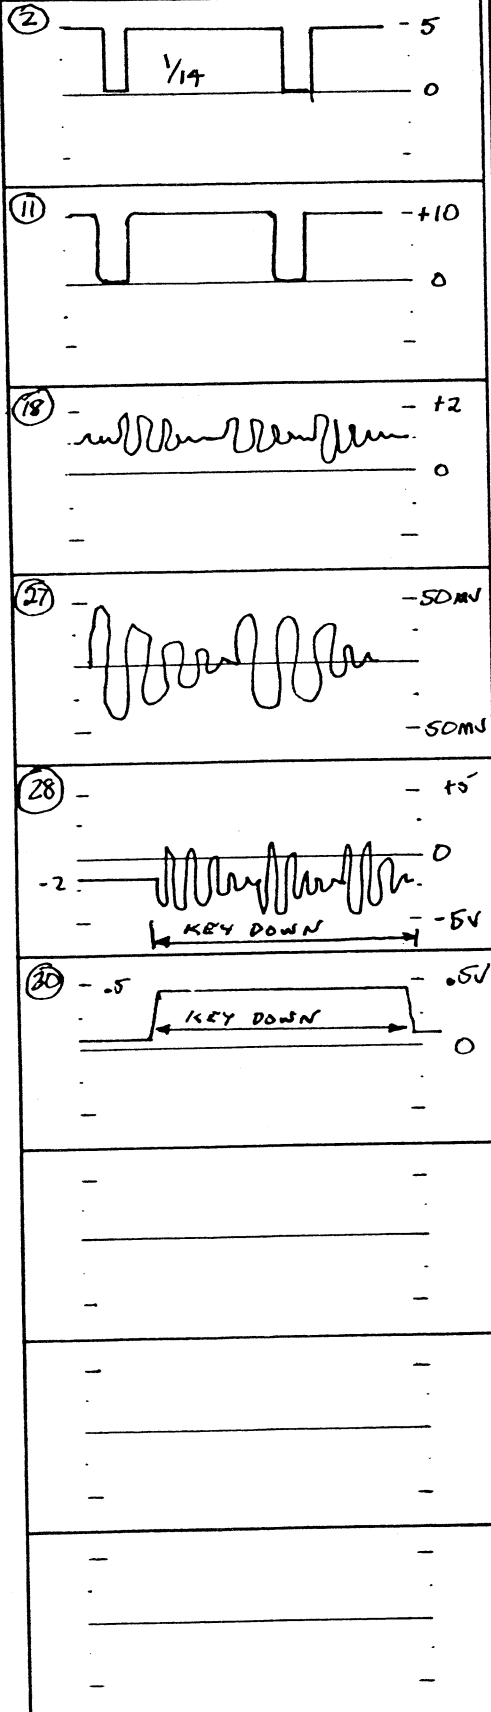 2
- 5
1/14
0
11
- +10
0
18
+2
0
27
- 50MV
- 50MV
28
+5
0
-2
- -5V
KEY DOWN
30
- .5
.5V
KEY DOWN
0